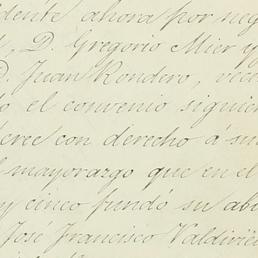 dente ahora por neg
, D. Gregorio Mier y
D. Juan Rondero, vec
ó el convenio siguien
erce con derecho á su
mayorazgo que en el
y cinco fundó su abu
José Francisco Valdivie